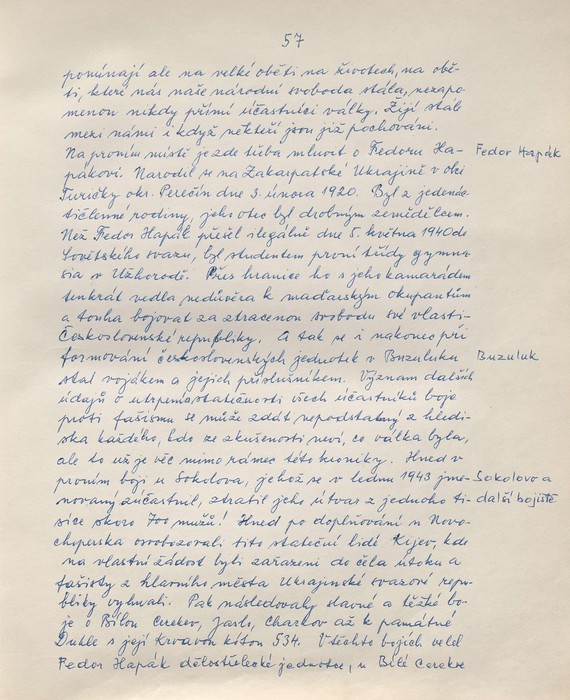 57
pomínají ale na velké oběti na životech, na obě-
ti, které nás naše národní svoboda stála, nezapo-
menou nikdy přímí účastníci války. Žijí stále
mezi námi i když někteří jsou již pochováni.
Na prvním místě je zde třeba mluvit o Fedoru Ha-
Fedor Hapák
pákovi. Narodil se na Zakarpatské Ukrajině v obci
Turičky okr. Perečín dne 3. února 1920. Byl z jedenác-
tičlenné rodiny, jeho otec byl drobným zemědělcem.
Než Fedor Hapák přešel ilegálně dne 5. května 1940 do
Sovětského svazu, byl studentem první třídy gymna-
sia v Užhorodě. Přes hranice ho s jeho kamarádem
tenkrát vedla nedůvěra k maďarským okupantům
a touha bojovat za ztracenou svobodu své vlasti-
Československé republiky. A tak se i nakonec při
formování československých jednotek v Buzuluku
Buzuluk
stal vojákem a jejich příslušníkem. Význam dalších
údajů o utrpení a statečnosti všech účastníků boje
proti fašismu se může zdát nepodstatný z hledi-
ska každého, kdo ze zkušenosti neví, co válka byla,
ale to už je věc mimo rámec této kroniky. Hned v
prvním boji u Sokolova, jehož se v lednu 1943 jme-
Sokolovo a
novaný zúčastnil, ztratil jeho útvar z jednoho ti-
další bojiště
síce skoro 700 mužů! Hned po doplňování u Novo-
choperska osvobozovali tito stateční lidé Kijev, kde
na vlastní žádost byli zařazeni do čela útoku a
fašisty z hlavního města Ukrajinské svazové repu-
bliky vyhnali. Pak následovaly slavné a těžké bo-
je o Bílou Cerekev, Jaslo, Charkov až k památné
Dukle s její Krvavou kótou 534. V těchto bojích velel
Fedor Hapák dělostřelecké jednotce, u Bílé Cerekve